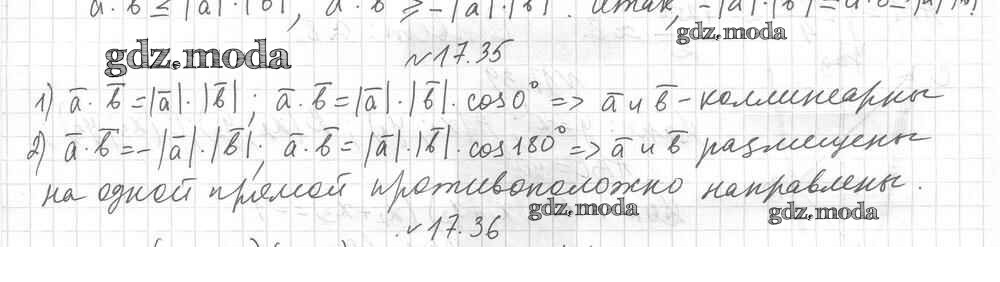 a̅·b̅ ≤ |a̅|·|b̅|, a̅·b̅ ≥ -|a̅|·|b̅|. Итак, -|a̅|·|b̅| ≤ a̅·b̅ ≤ |a̅|·|b̅|
gdz.moda
gdz.moda
№17.35
1) a̅·b̅=|a̅|·|b̅|; a̅·b̅=|a̅|·|b̅|·cos0° => a̅ и b̅ - коллинеарны
2) a̅·b̅=-|a̅|·|b̅|; a̅·b̅=|a̅|·|b̅|·cos180° => a̅ и b̅ размещены
на одной прямой противоположно направлены.
gdz.moda
gdz.moda
№17.36